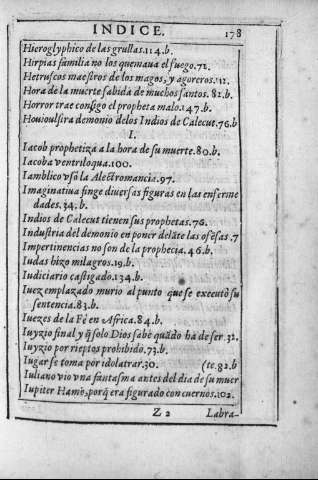 INDICE. 178
Hieroglyphico de las grullas.114.b.
Hirpias familia no los quemaua el fuego.72.
Hetruscos maestros de los magos, y agoreros.
Hora de la muerte sabida de muchos santos. 82.b.
Horror trae consigo el propheta malo.147.b.
Houioulsira demonio de los Indios de Calecut.76.b
I.
Iacob prophetiza a la hora de su muerte.80.b.
Iacoba ventriloqua.100.
Iamblico vsó la Alectromancia.97.
Imaginatiua finge diuersas figuras en las enferme
dades.34.b.
Indios de Calecut tienen sus prophetas.76.
Industria del demonio en poner delāte las ofēsas.7
Impertinencias no son de la prophecia.46.b.
Iudas hizo milagros.19.b.
Iudiciario castigado.134.b.
Iuez emplazado murio al punto que se executò su
sentencia.83.b.
Iuezes de la Fè en Africa.84.b.
Iuyzio final y q̃ solo Dios sabe quādo ha de ser.32.
Iuyzio por rieptos prohibido.73.b.
Iugarse toma por idolatrar.30. (te.82.b
Iuliano vio vna fantasma antes del dia de su muer
Iupiter Hamō, porq̃ era figurado con cuernos.102.
Z 2 Labra-